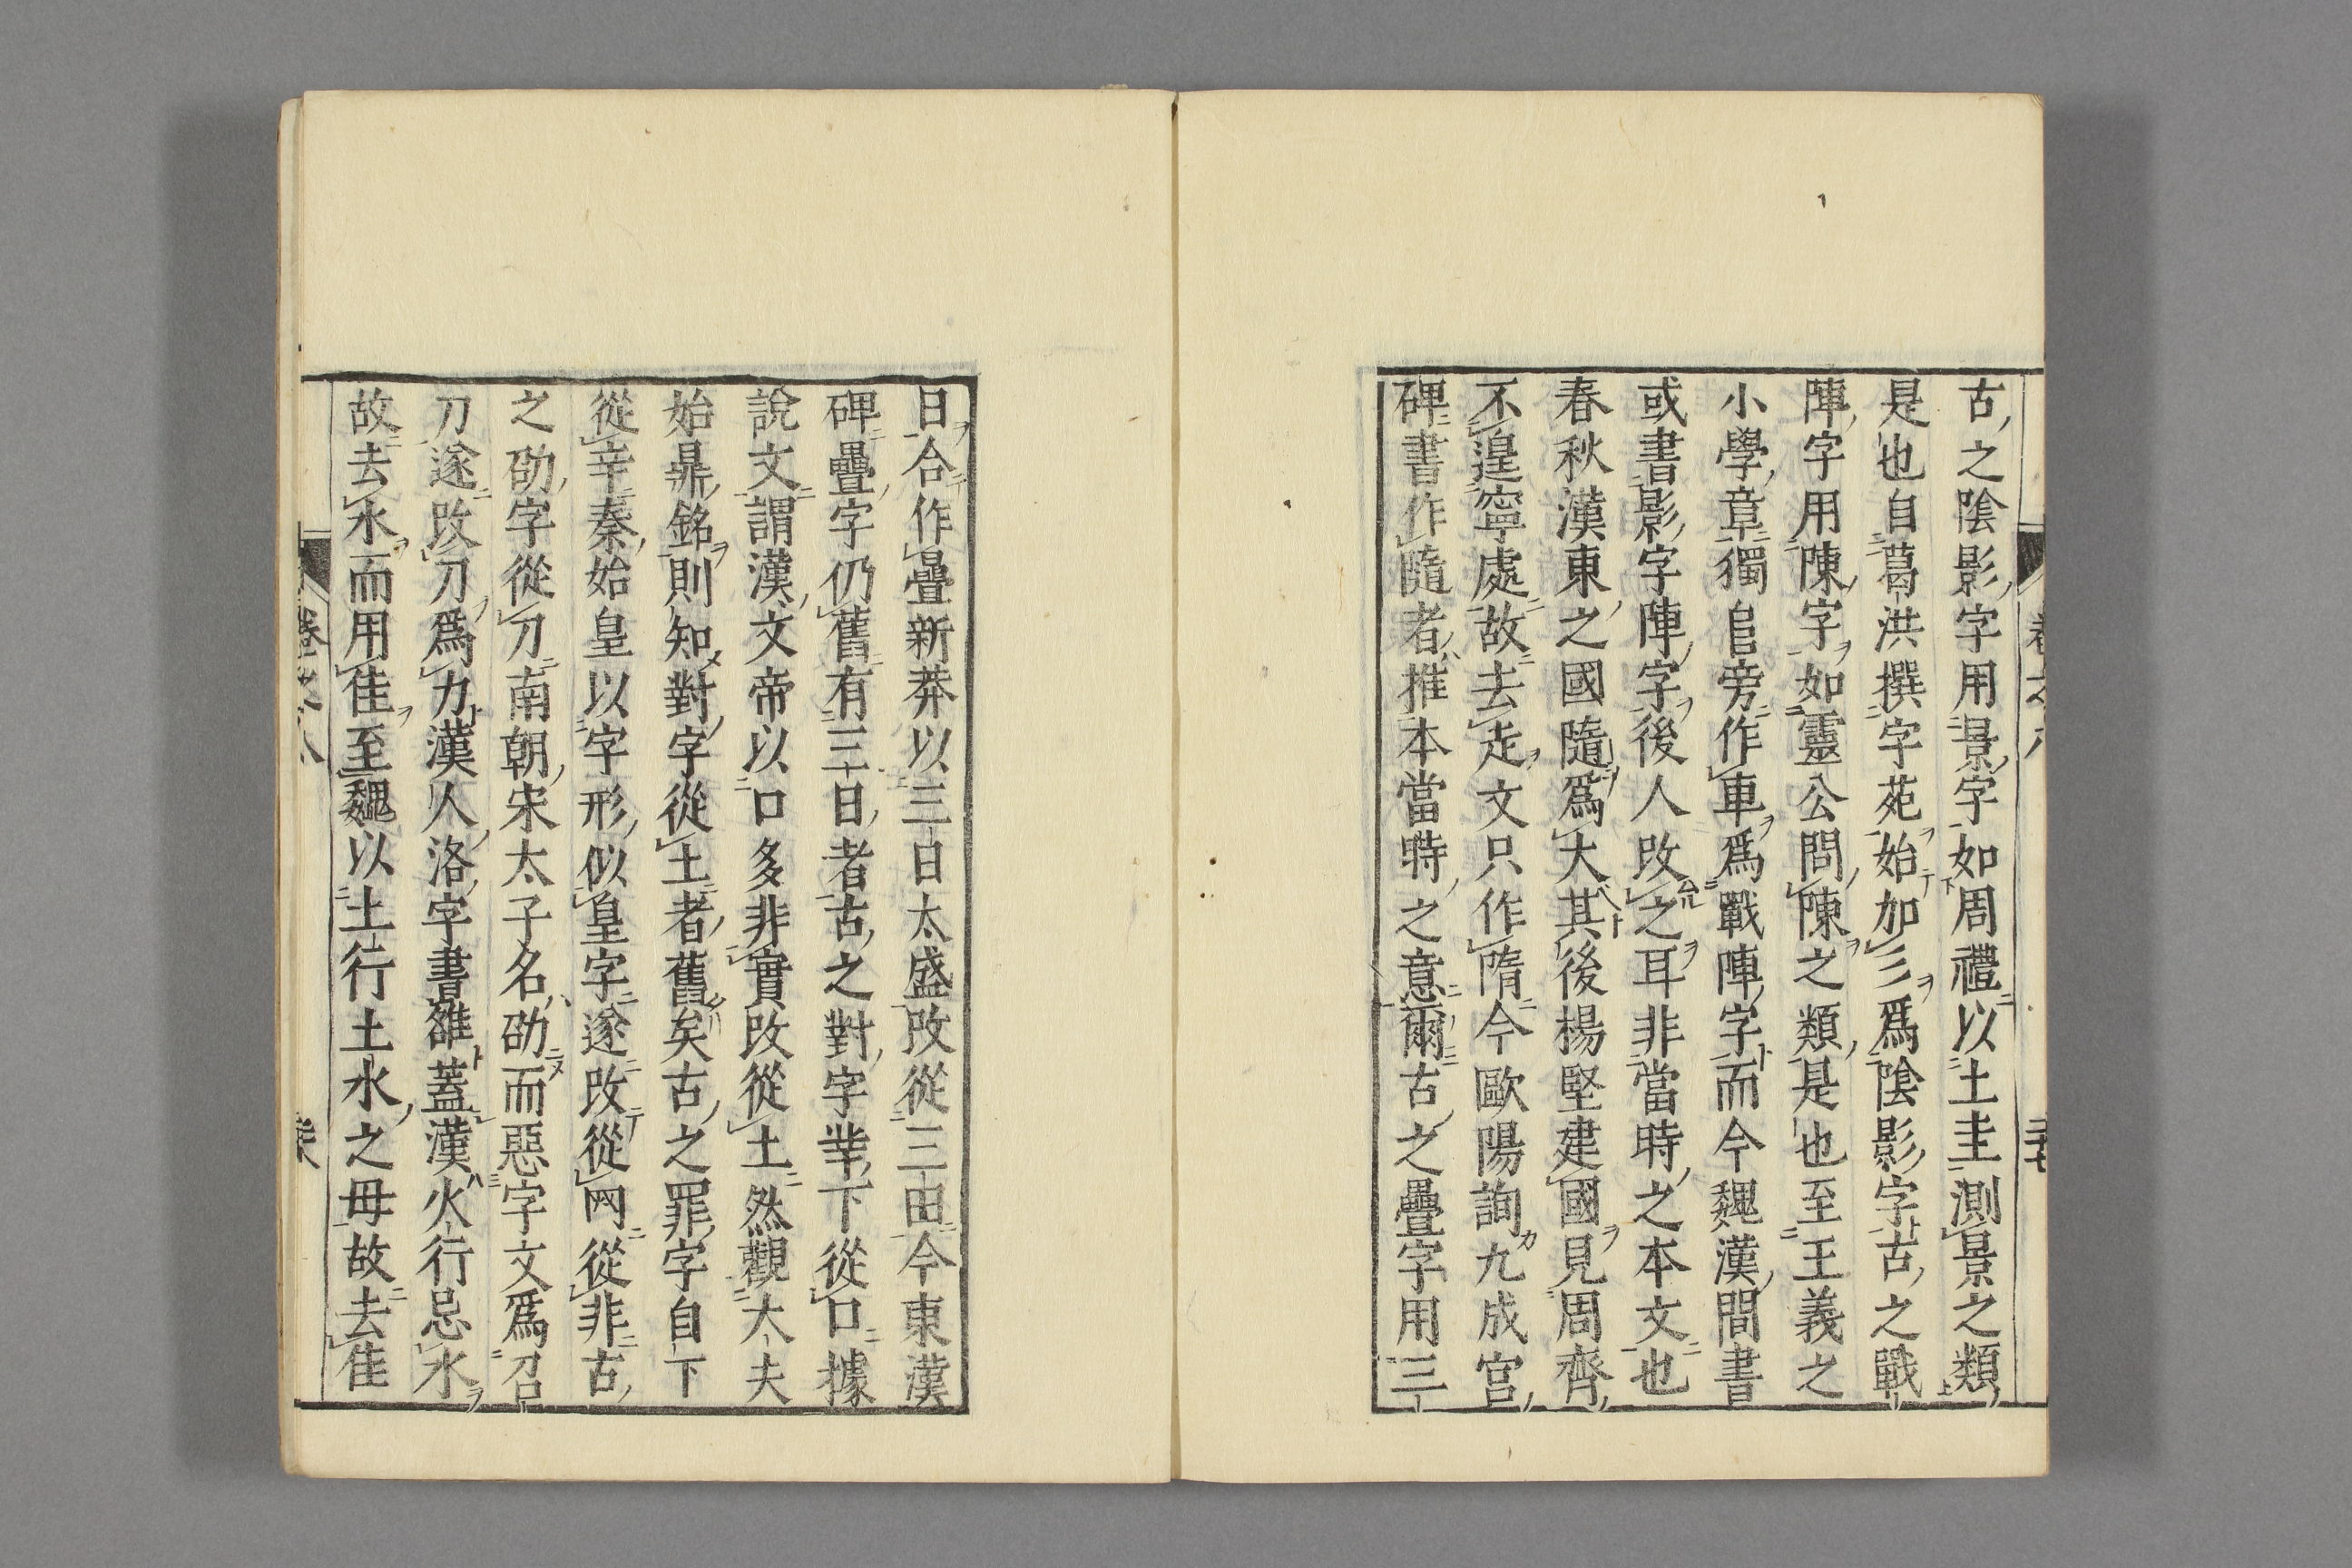 古之陰影字用景字如周禮以土圭測景之類
是也自葛洪撰字苑始加彡爲陰影字古之戰
陣字用陳字如靈公問陳之類是也至王義之
小學章獨𨸏旁作車爲戰陣字而今魏漢間書
或書影字陣字後人改之耳非當時之本文也
春秋漢東之國隨爲大其後楊堅建國見周齊
不遑寧處故去辵文只作隋今歐陽詢九成宮
碑書作隨者推本當時之意爾古之疊字用三
日合作疊新莽以三日太盛改從三田今東漢
碑疊字仍舊有三日者古之對字丵下從口據
說文謂漢文帝以口多非實改從土然觀大夫
始鼎銘則知對字從土者舊矣古之罪字自下
從辛秦始皇以字形似皇字遂改從网從非古
之劭字從刀南朝宋太子名劭而惡字文爲召
刀遂改刀爲力漢人洛字書雒蓋漢火行忌水
故去水而用隹至魏以土行土水之母故去隹
卷之八